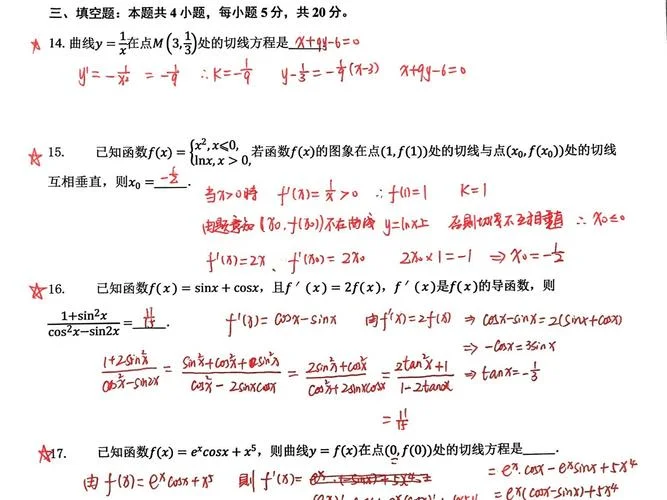 三、填空题：本题共 4 小题，每小题 5 分，共 20 分。
☆ 14. 曲线y = 1/x 在点M(3, 1/3)处的切线方程是 x+9y-6=0
y' = -1/x² = -1/9 ∴K=-1/9 y-1/3=-1/9(x-3) x+9y-6=0
☆ 15. 已知函数f(x) = {x², x⩽0, lnx, x > 0, 若函数f(x)的图象在点(1, f(1))处的切线与点(x₀, f(x₀))处的切线
互相垂直，则x₀ = -1/2.
当x>0时 f'(x)=1/x>0 ∴f'(1)=1 K=1
由题意知(x₀, f(x₀))不在曲线 y=lnx上 否则切线不互相垂直 ∴x₀≤0
f'(x)=2x、f'(x₀)=2x₀ 2x₀×1=-1 ⇒ x₀=-1/2
☆ 16. 已知函数f(x) = sinx + cosx，且f′(x) = 2f(x)，f′(x)是f(x)的导函数，则
(1+sin²x)/(cos²x−sin2x) = 11/15.
f'(x)=cosx-sinx 由f'(x)=2f(x) ⇒ cosx-sinx=2(sinx+cosx)
⇒ -cosx=3sinx
(1+2sin²x)/(cos²x-sin2x) = (sin²x+cos²x+sin²x)/(cos²x-2sinxcosx) = (2sin²x+cos²x)/(cos²x+2sinxcosx) = (2tan²x+1)/(1-2tanx) ⇒ tanx=-1/3
= 11/15
☆17. 已知函数f(x) = eˣcosx + x⁵，则曲线y = f(x)在点(0, f(0))处的切线方程是_____.
由 f(x)=eˣcosx+x⁵ 则 f'(x)= = eˣ·cosx-eˣsinx+5x⁴
= eˣ(cosx-sinx)+5x⁴